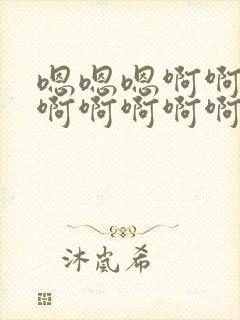 嗯嗯嗯啊啊
啊啊啊啊啊
沐岚希